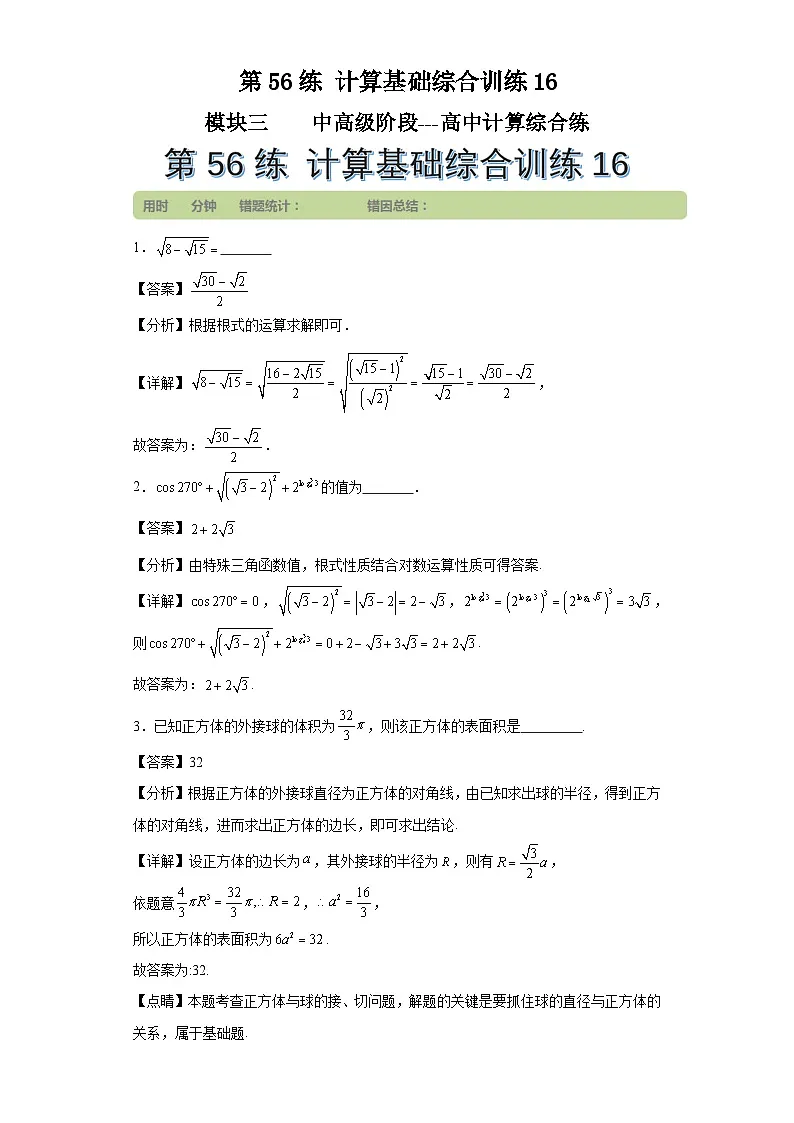 第 56 练 计算基础综合训练 16
模块三 中高级阶段---高中计算综合练
第 56 练 计算基础综合训练 16
用时 分钟 错题统计: 错因总结:
1. √(8-√15) = _______
【答案】(√30-√2)/2
【分析】根据根式的运算求解即可.
【详解】√(8-√15) = √((16-2√15)/2) = √((√15-1)²/(√2)²) = (√15-1)/√2 = (√30-√2)/2,
故答案为:(√30-√2)/2.
2. cos 270° + √((√3-2)²) + 的值为_______.
【答案】2+2√3
【分析】由特殊三角函数值,根式性质结合对数运算性质可得答案.
【详解】cos 270° = 0, √((√3-2)²) = |√3-2| = 2-√3, = 3√3,
则 cos 270° + √((√3-2)²) + = 0+2-√3+3√3 = 2+2√3.
故答案为:2+2√3.
3.已知正方体的外接球的体积为32/3 π,则该正方体的表面积是________.
【答案】32
【分析】根据正方体的外接球直径为正方体的对角线,由已知求出球的半径,得到正方
体的对角线,进而求出正方体的边长,即可求出结论.
【详解】设正方体的边长为a,其外接球的半径为R,则有R=√3/2 a,
依题意4/3 πR³ = 32/3 π,∴R=2,∴a²=16/3,
所以正方体的表面积为6a²=32.
故答案为:32.
【点睛】本题考查正方体与球的接、切问题,解题的关键是要抓住球的直径与正方体的
关系,属于基础题.